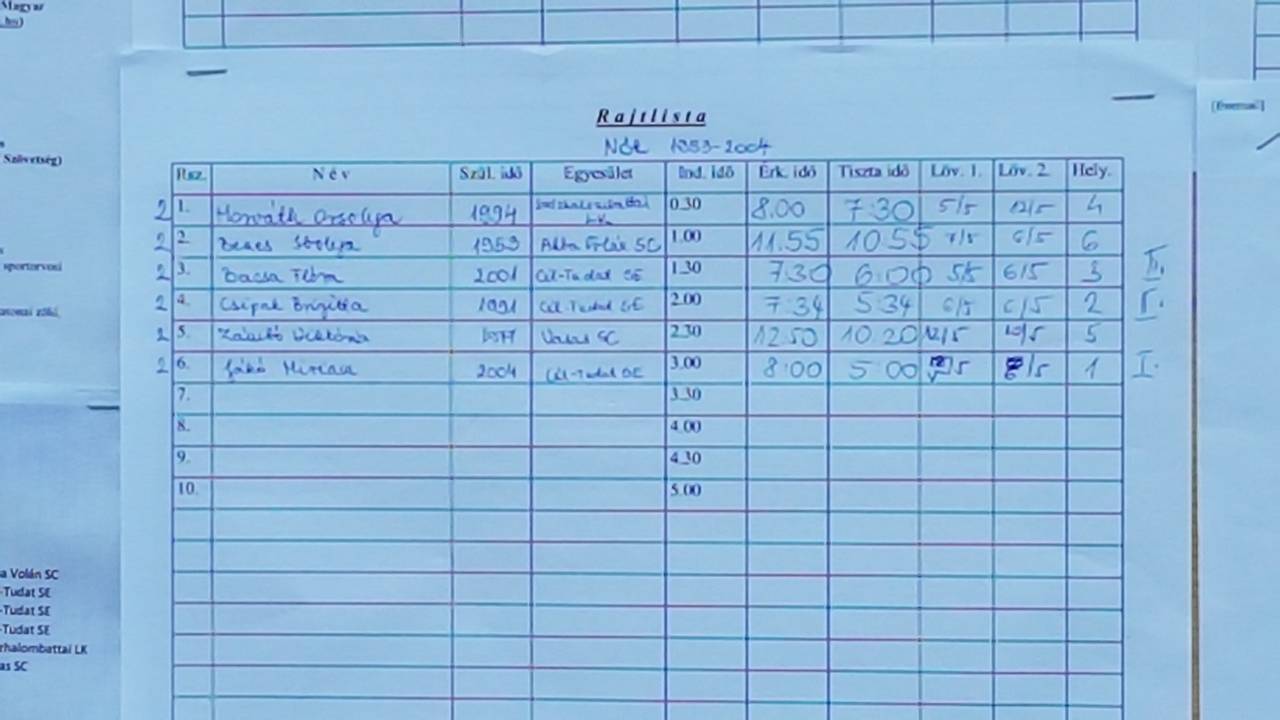 Magyar
.hu)
Szövetség)
sportorvosi
Rajtlista
Nők 1953-2004
Rsz. Név Szül. idő Egyesület Ind. idő Érk. idő Tiszta idő Löv. 1. Löv. 2. Hely.
2 1. Horváth Orsolya 1994 LK 0.30 8.00 7:30 5/5 12/5 4
2 2. 1953 Alba Volán SC 1.00 11.55 10 55 7/5 6/5 6
2 3. Bacsa 2001 Cél-Tudat SE 1.30 7:30 6:00 5/5 6/5 3 II.
2 4. Csipak Brigitta 1991 Cél-Tudat SE 2.00 7:34 5:34 6/5 6/5 2
2 5. 1977 Vasas SC 2.30 12 50 10 20 12/5 10/5 5
2 6. Jákó Miriam 2004 Cél-Tudat SE 3.00 8:00 5:00 /5 /5 1 I.
7. 3.30
8. 4.00
9. 4.30
10. 5.00
a Volán SC
-Tudat SE
-Tudat SE
-Tudat SE
rhalombattai LK
as SC